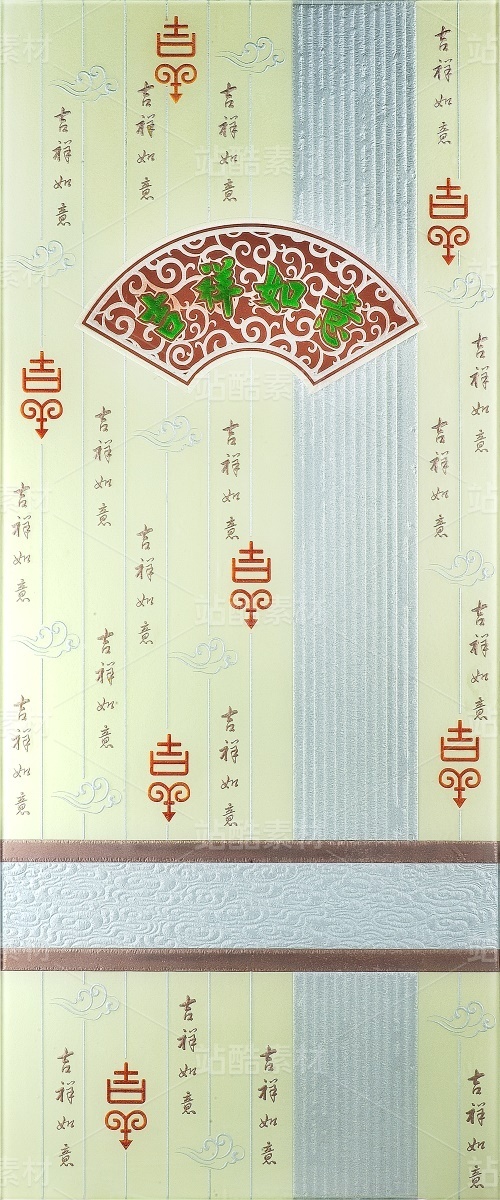 吉
吉祥如意
吉祥如意
吉祥如意
吉祥如意
站酷素材
吉
吉祥如意
吉祥如意
吉
站酷素材
吉祥如意
吉祥如意
吉祥如意
吉祥如意
吉祥如意
吉祥如意
吉
站酷素材
吉祥如意
吉祥如意
吉祥如意
吉祥如意
吉
吉
站酷素材
吉祥如意
吉祥如意
吉
站酷素材
吉祥如意
吉祥如意